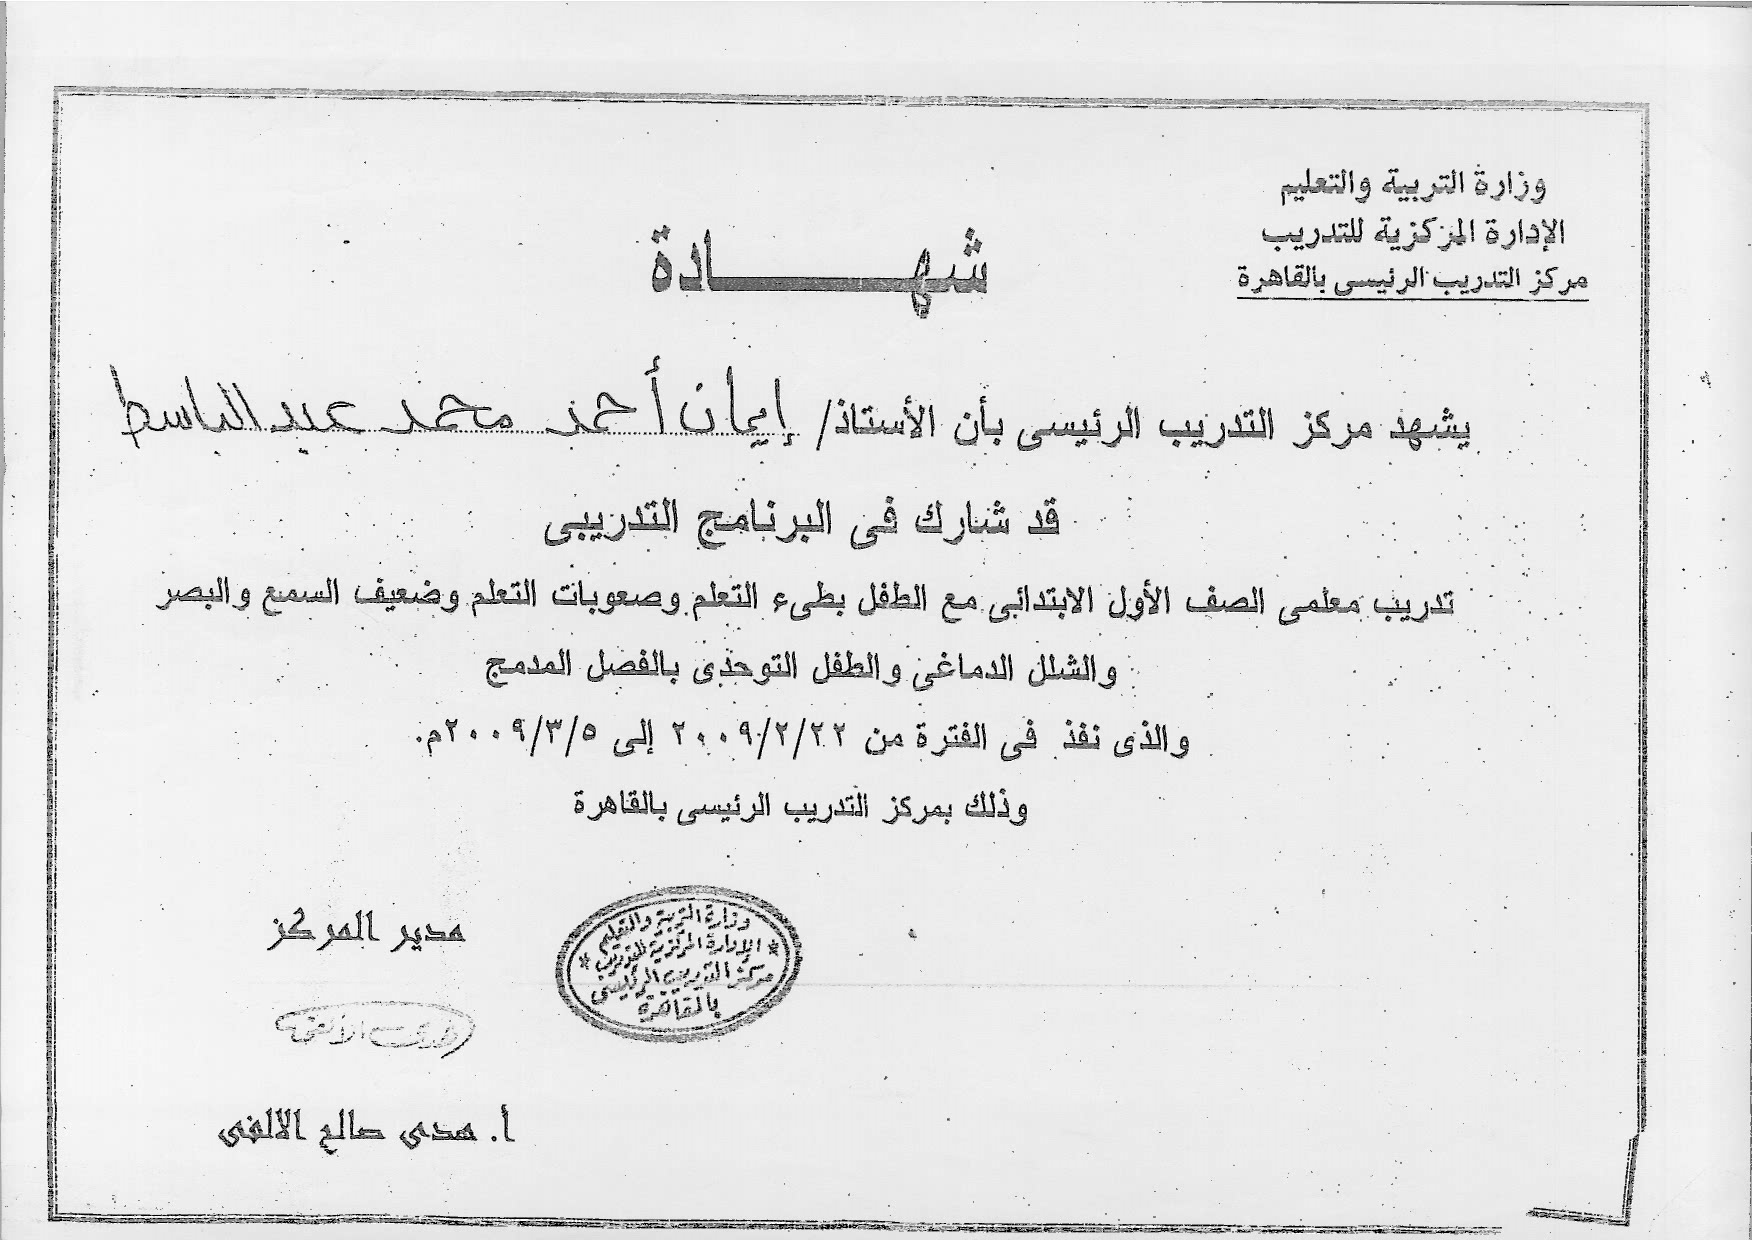 وزارة التربية والتعليم
الإدارة المركزية للتدريب
مركز التدريب الرئيسى بالقاهرة
شهـــــــادة
يشهد مركز التدريب الرئيسى بأن الأستاذ/ إيمان أحمد محمد عبد الباسط
قد شارك فى البرنامج التدريبى
تدريب معلمى الصف الأول الابتدائى مع الطفل بطىء التعلم وصعوبات التعلم وضعيف السمع والبصر
والشلل الدماغى والطفل التوحدى بالفصل المدمج
والذى نفذ فى الفترة من ٢٠٠٩/٢/٢٢ إلى ٢٠٠٩/٣/٥م.
وذلك بمركز التدريب الرئيسى بالقاهرة
وزارة التربية والتعليم
الإدارة المركزية للتدريب
مركز التدريب الرئيسى
بالقاهرة
مدير المركز
هدى الألفى
أ. هدى صالح الالفى